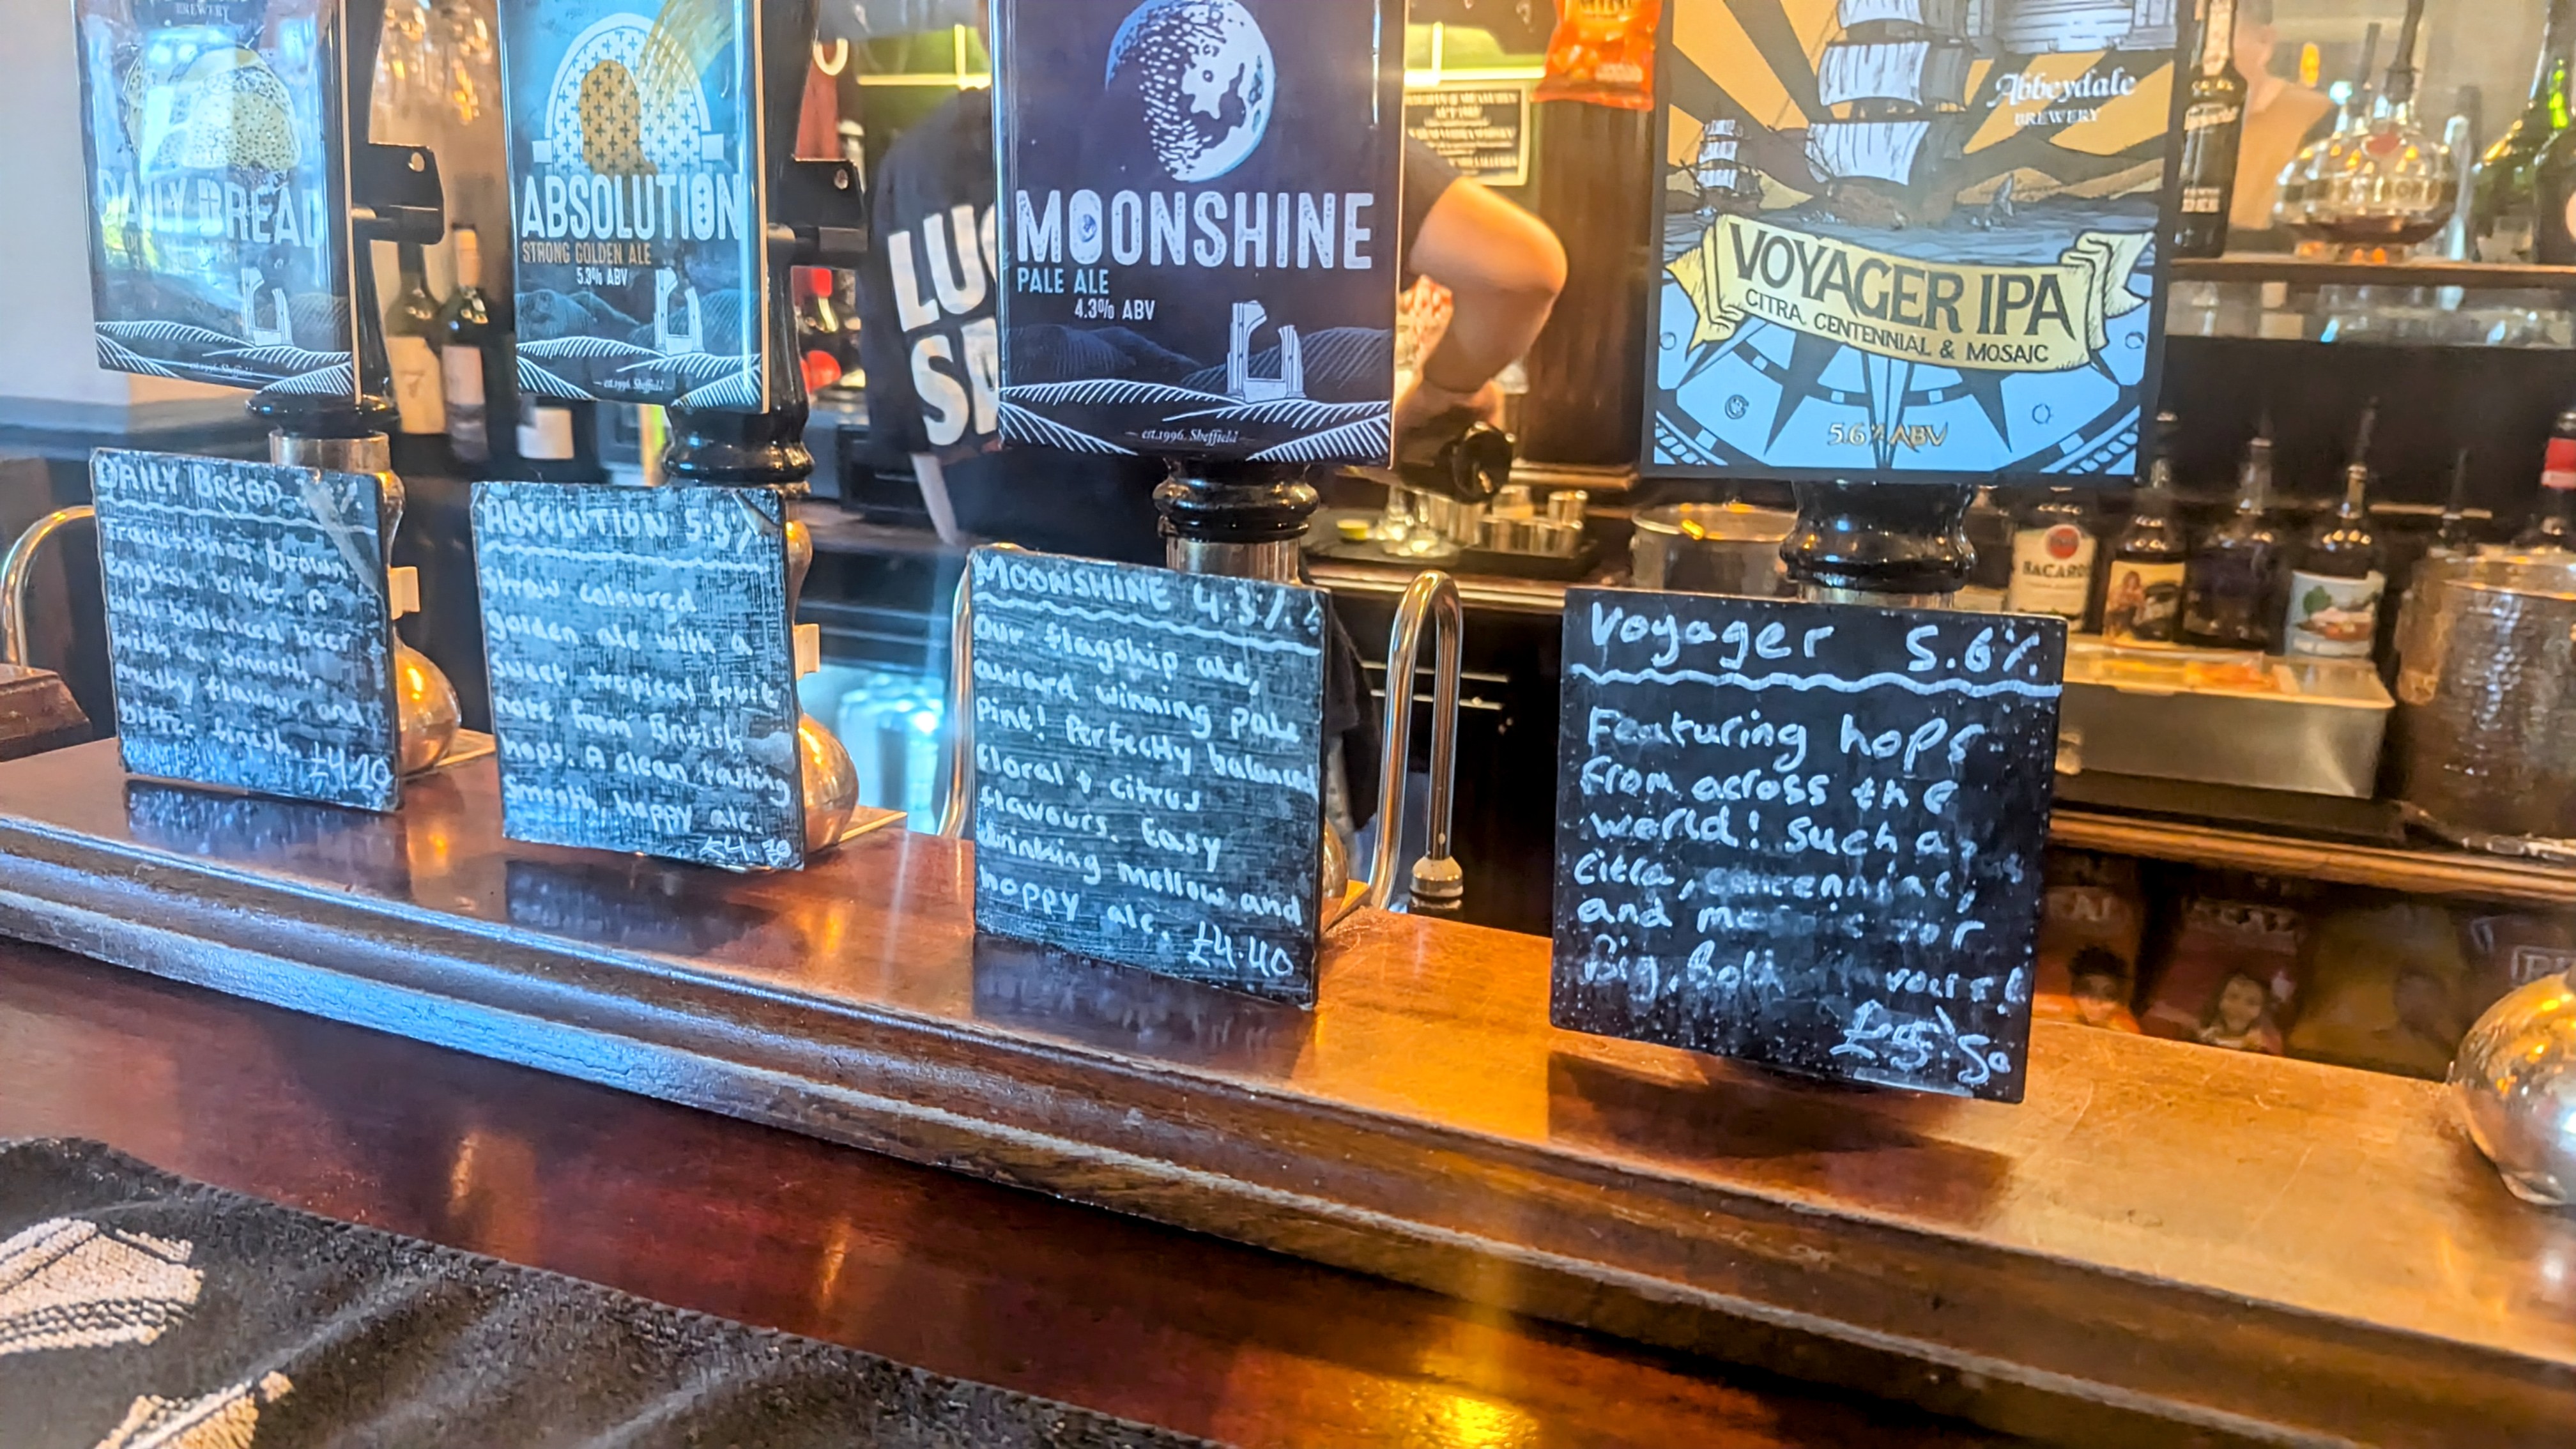 BREWERY
DAILY BREAD
est.1996. Sheffield
ABSOLUTION
STRONG GOLDEN ALE
5.3% ABV
est.1996. Sheffield
MOONSHINE
PALE ALE
4.3% ABV
est.1996. Sheffield
Abbeydale
BREWERY
VOYAGER IPA
CITRA, CENTENNIAL & MOSAIC
5.6% ABV
BACARDI
DAILY BREAD
Traditional brown
English bitter. A
well balanced beer
with a smooth
malty flavour and
bitter finish.
ABSOLUTION 5.3%
Straw coloured
golden ale with a
sweet tropical fruit
note from British
hops. A clean tasting
smooth, hoppy ale.
MOONSHINE 4.3%
Our flagship ale,
award winning pale
pint! Perfectly balanced
floral + citrus
flavours. Easy
drinking mellow and
hoppy ale. £4.40
Voyager 5.6%
Featuring hops
from across the
world! Such as
citra,
and
Big, Bold
£5.50